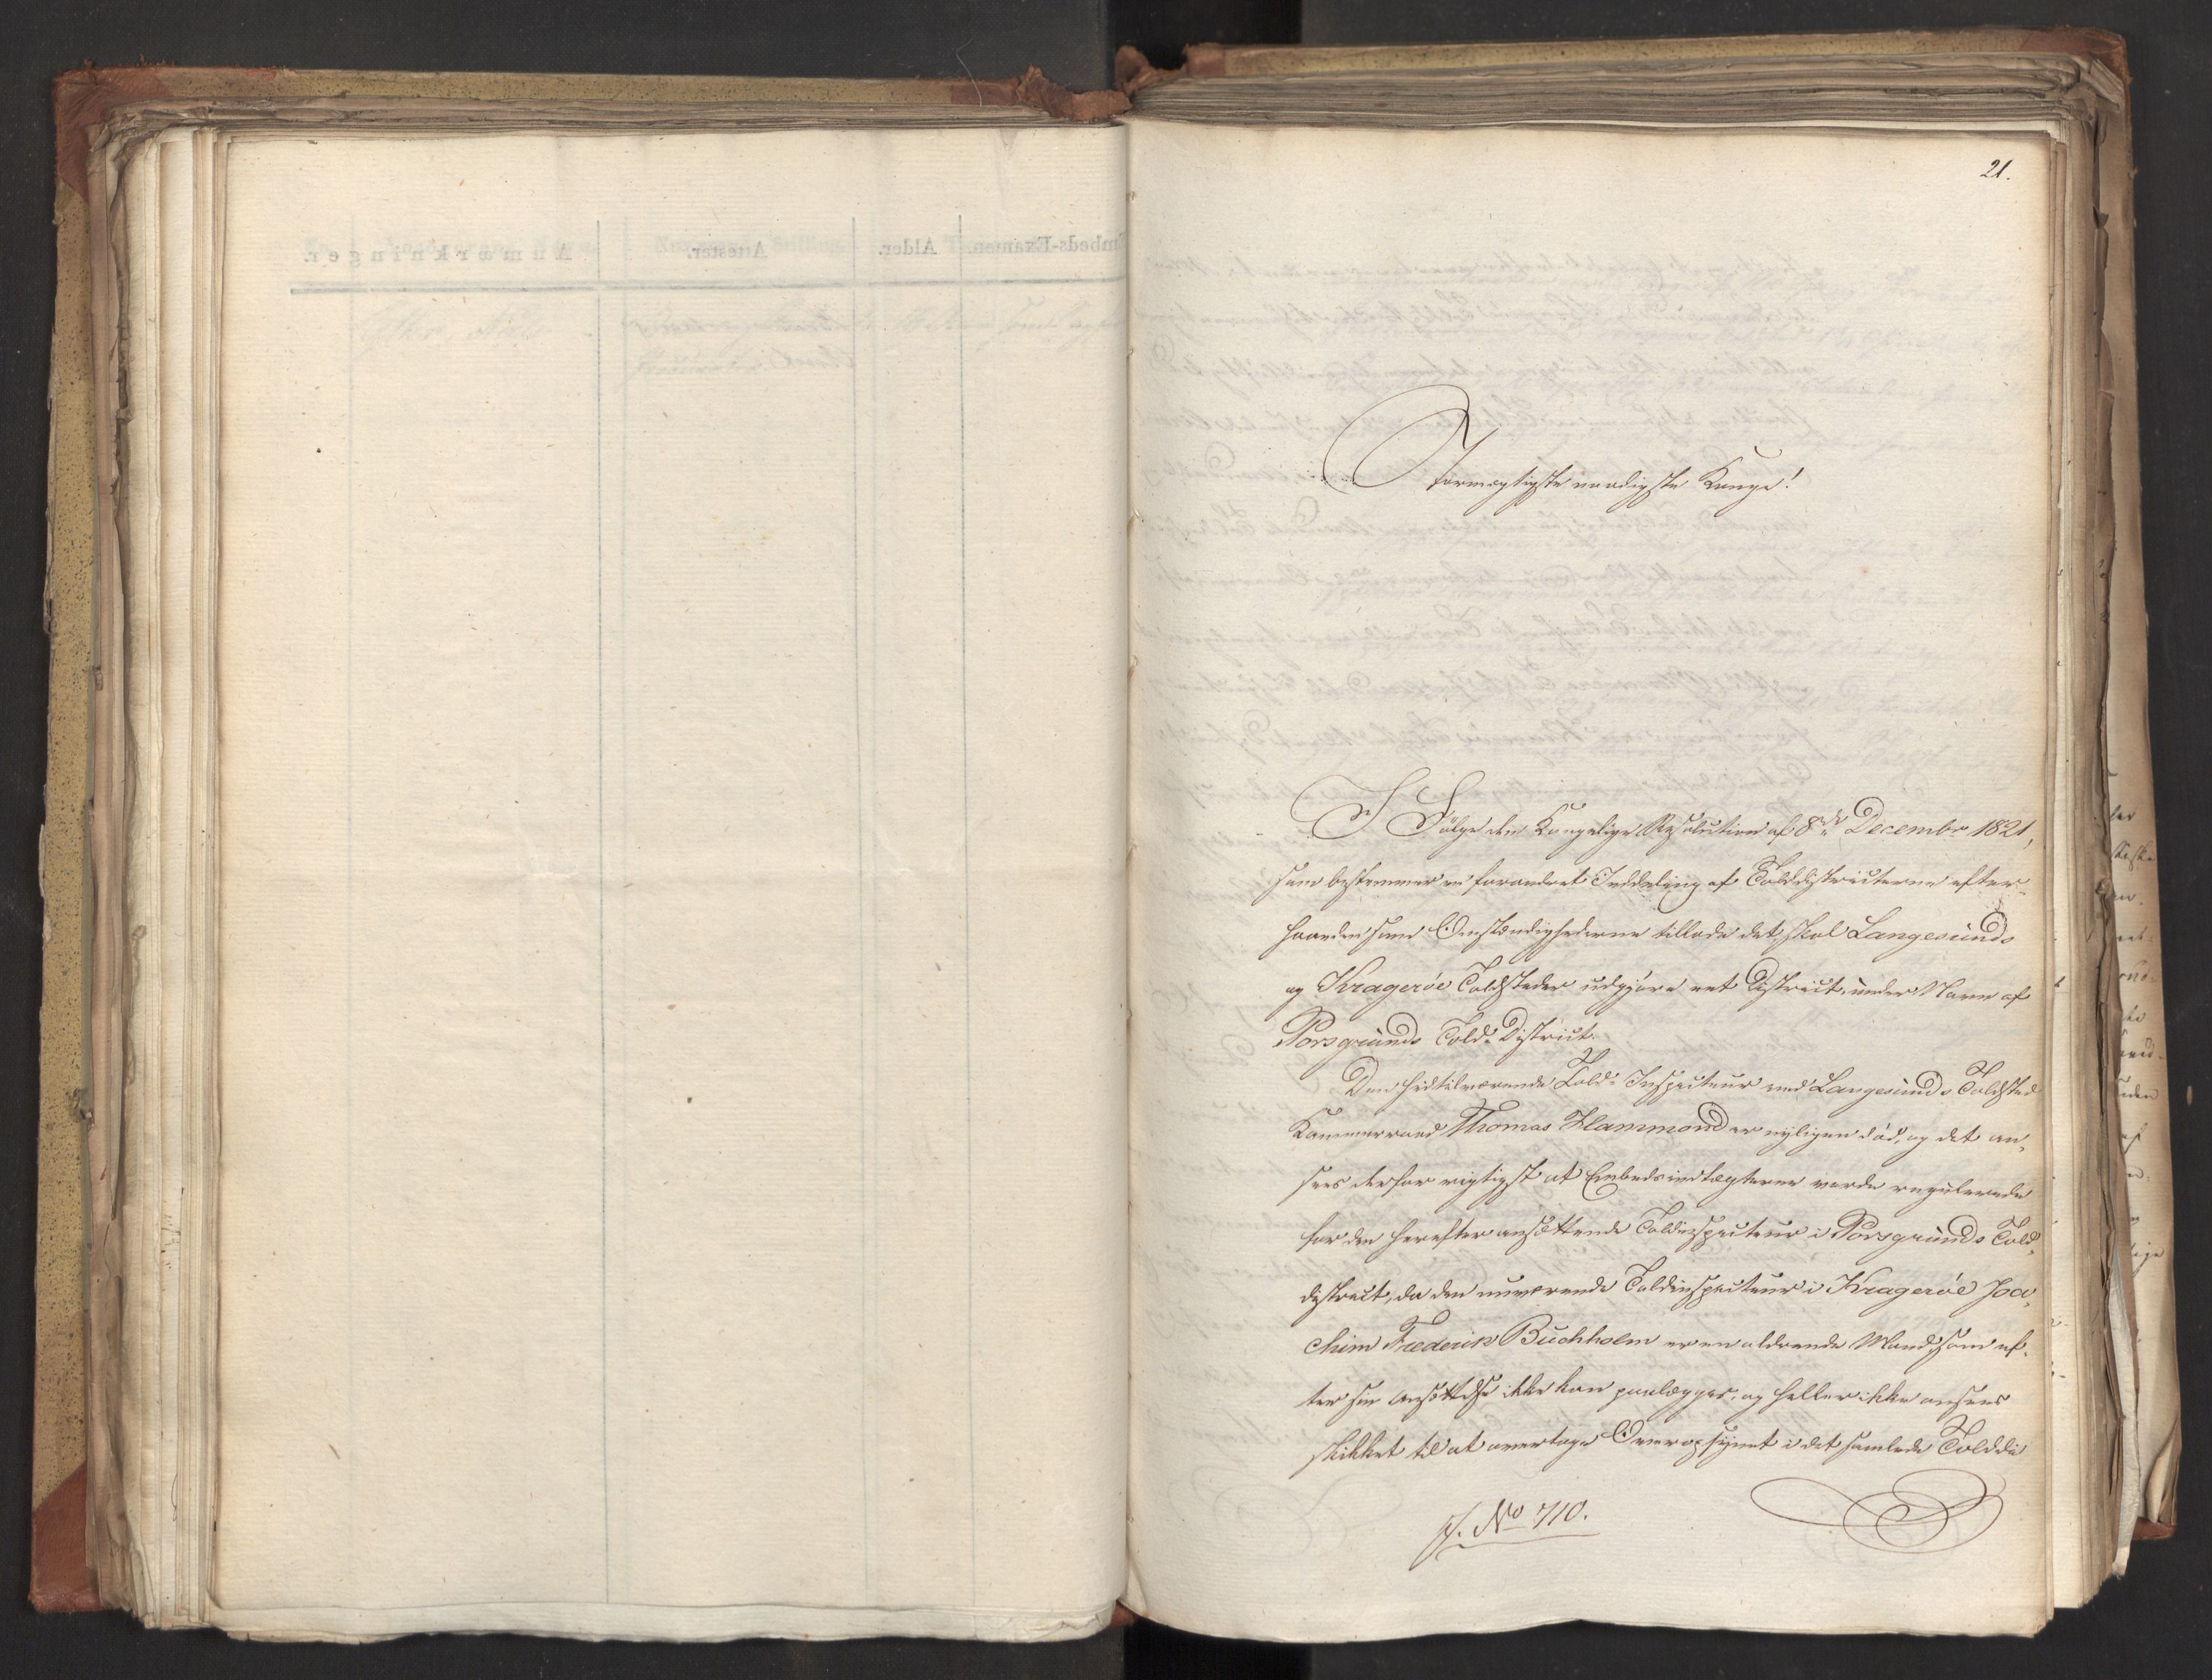 21.
Stormægtigste naadigste Konge!
I Følge den Kongelige Resolution af 8de Decembr 1821,
som bestemmer en forandret Inddeling af Tolddistricterne efter-
haanden som Omstændighederne tillade det, skal Langesunds
og Kragerøe Toldsteder udgjøre eet District under Navn af
Porsgrunds Told-District.
Den hidtilværende Told-Inspecteur ved Langesunds Toldsted
Kammerraad Thomas Hammond er nyligen död, og det an-
sees derfor rigtigst at Embedsindtægterne vorde regulerede
for den herefter ansættende Toldinspecteur i Porsgrunds Told-
district, da den nuværende Toldinspecteur i Kragerøe Joa-
chim Frederik Buchholm er en aldrende Mand, som ef-
ter sin Ansættelse ikke kan paalægges, og heller ikke ansees
skikket til at overtage Overopsynet i det samlede Tolddi
No 710.